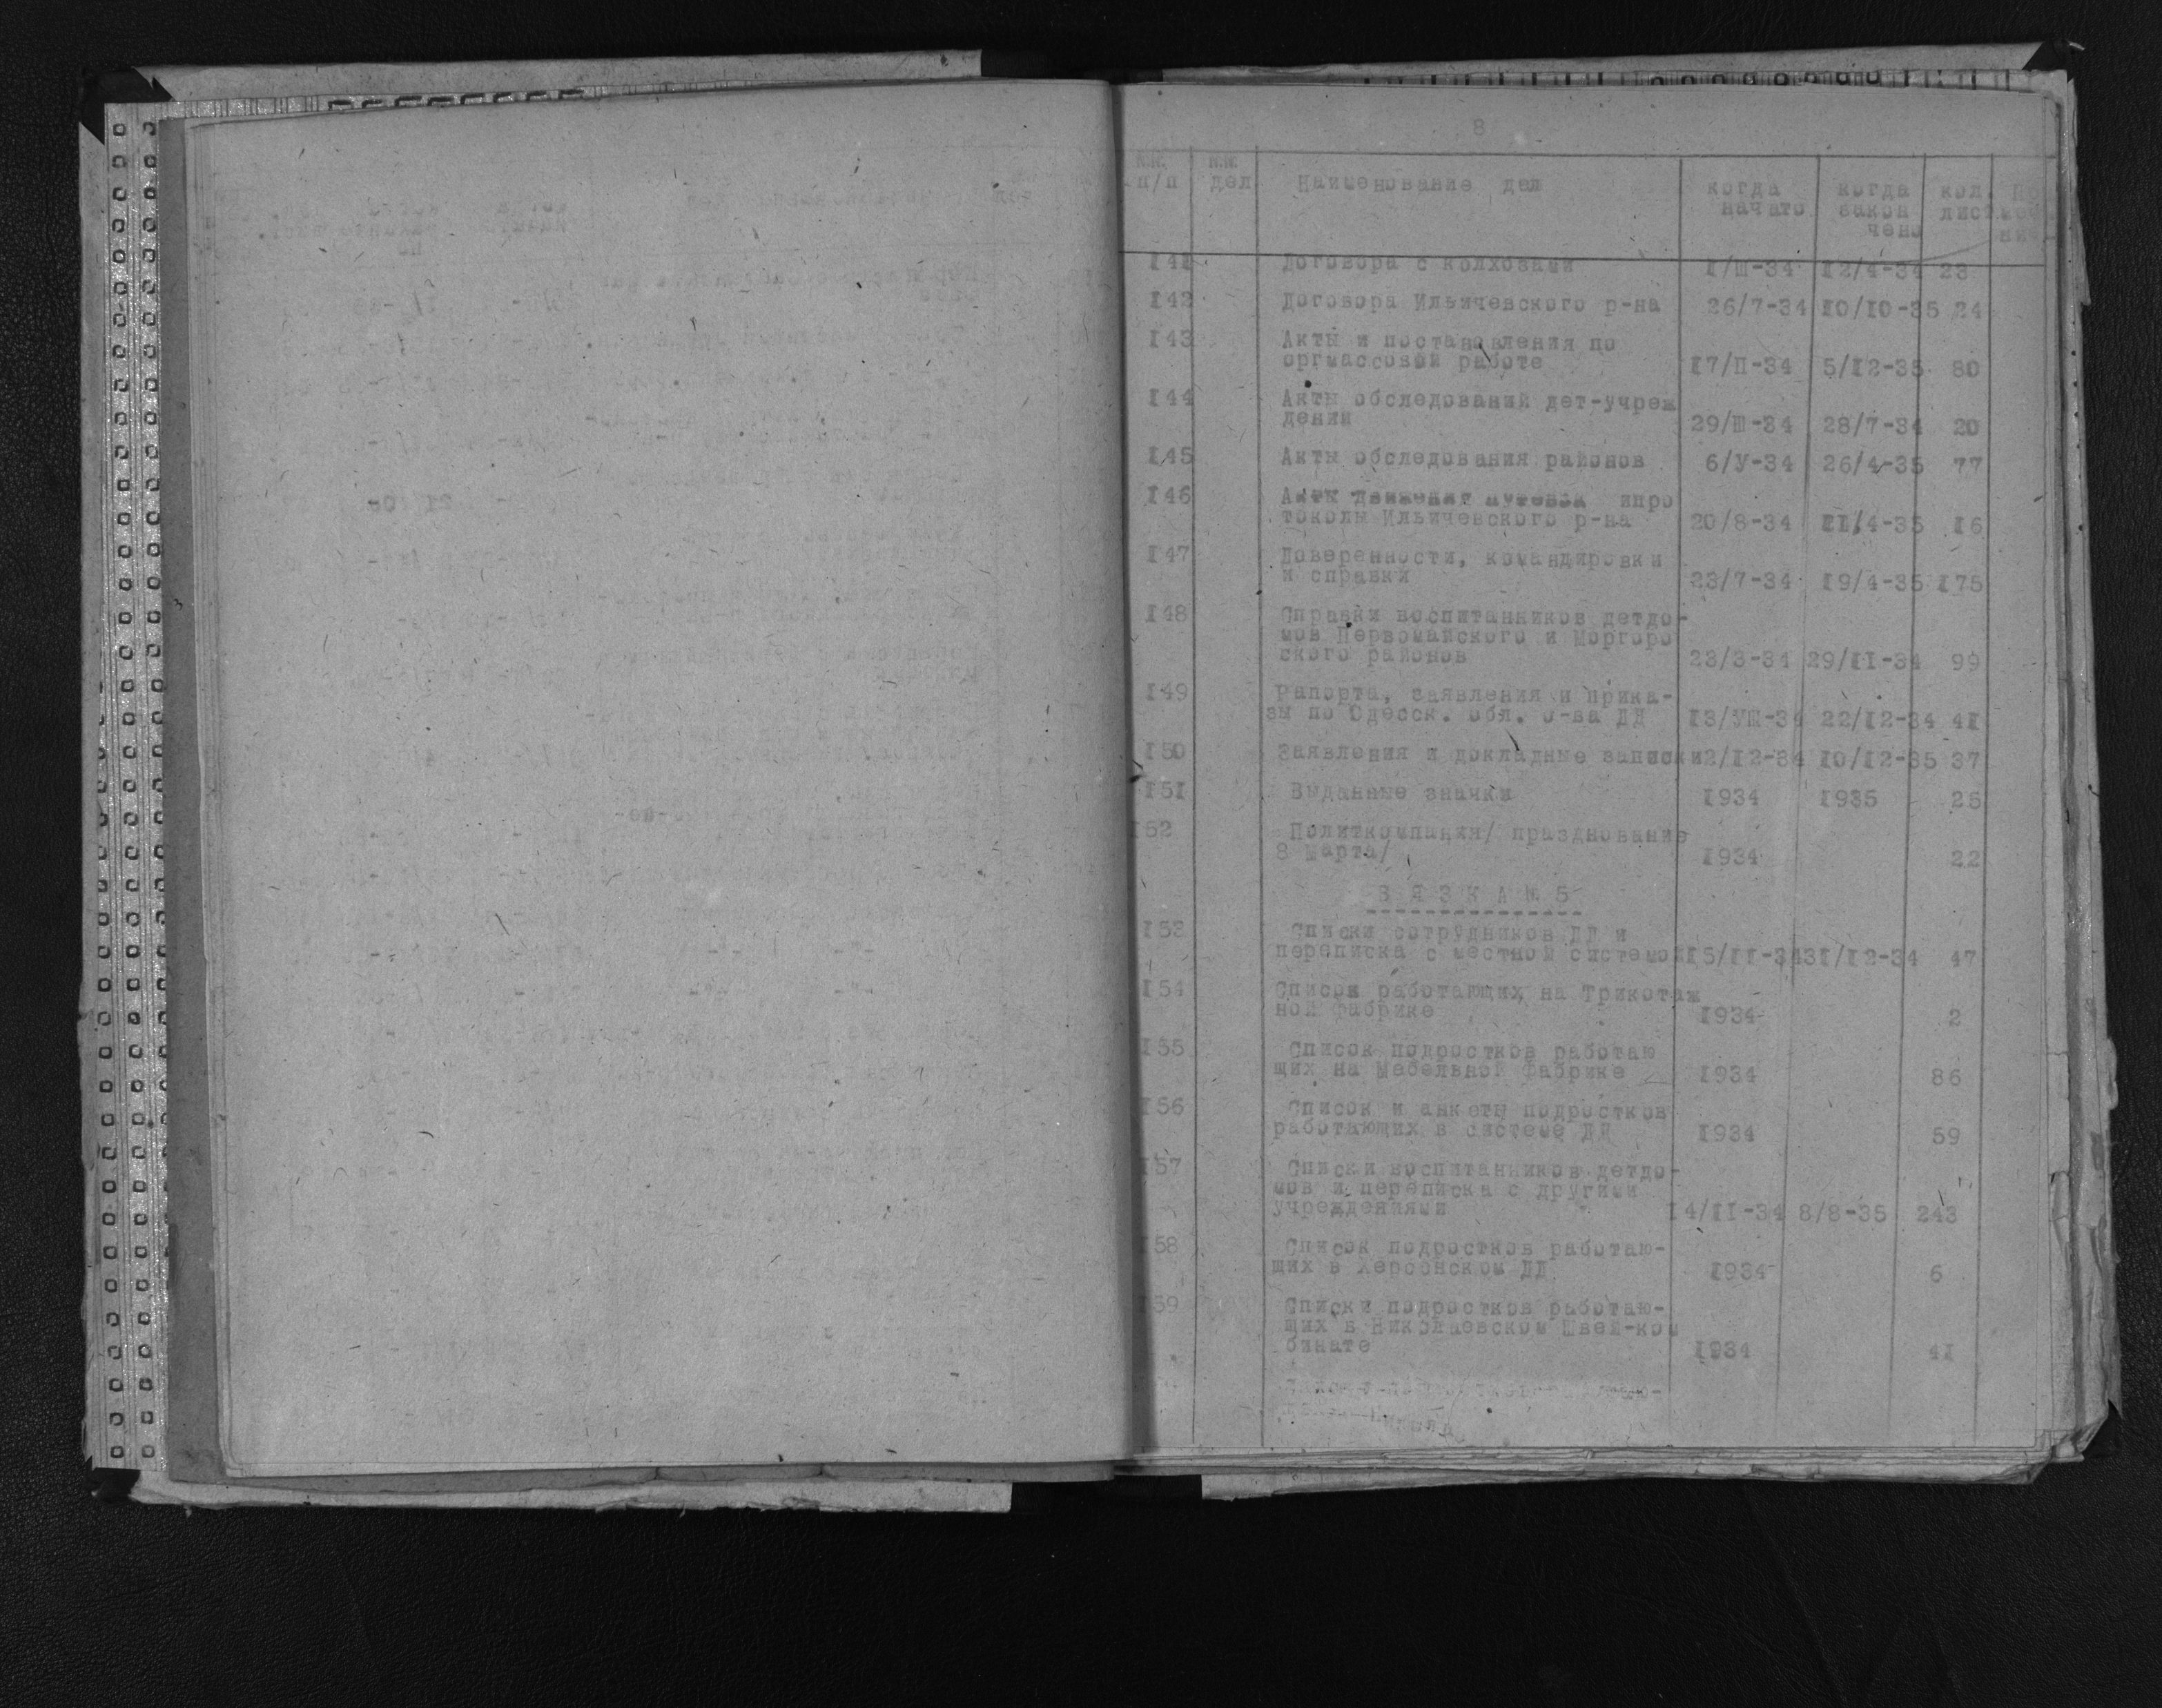 8
№.№. п/п №.№. дел Наименование дел когда начато когда закон чено кол. лист.
141 Договора с колхозами 1/Ш-34 12/4-34 23
142 Договора Ильичевского р-на 26/7-34 10/10-35 24
143 Акты и постановления по
оргмассовой работе 17/П-34 5/12-35 80
144 Акты обследований дет-учреж
дений 29/Ш-34 28/7-34 20
145 Акты обследования районов 6/У-34 26/4-35 77
146 Акты движения путевок ипро
токолы Ильичевского р-на 20/8-34 21/4-35 16
147 Доверенности, командировки
и справки 23/7-34 19/4-35 175
148 Справки воспитанников детдо-
мов Первомайского и Моргоро
ского районов 23/3-34 29/11-34 99
149 Рапорта, заявления и прика-
зы по Одесск. обл. о-ва ДД 13/УШ-34 22/12-34 41
150 Заявления и докладные записки 2/12-34 10/12-35 37
151 Выданные значки 1934 1935 25
152 Политкомпания/ празднование
8 марта/ 1934 22
В Я З К А № 5
153 Списки сотрудников ДД и
переписка с местной системой 15/11-34 31/12-34 47
154 Список работающих на Трикотаж
ной фабрике 1934 2
155 Список подростков работаю
щих на Мебельной фабрике 1934 86
156 Список и анкеты подростков
работающих в системе ДД 1934 59
157 Списки воспитанников детдо-
мов и переписка с другими
учреждениями 14/11-34 8/8-35 243
158 Список подростков работаю-
щих в Херсонском ДД 1934 6
159 Списки подростков работаю-
щих в Николаевском Швей-ком
бинате 1934 41